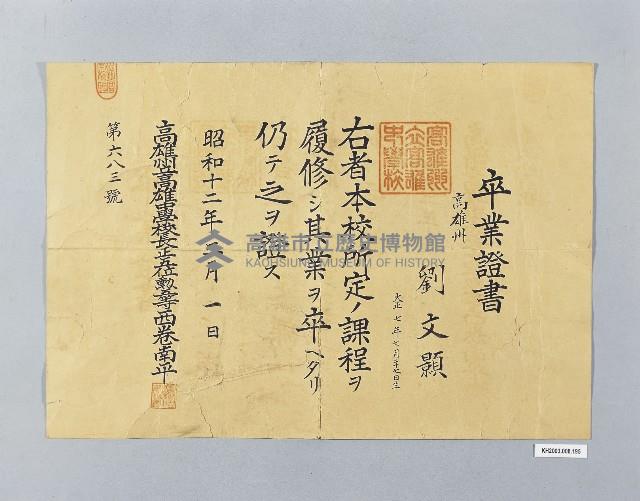 卒業證書
高雄州
劉文顯
大正七年七月廿七日生
右者本校所定ノ課程ヲ
履修シ其業ヲ卒ヘタリ
仍テ之ヲ證ス
昭和十二年三月一日
高雄州立高雄中學校長正五位勳五等西卷南平
第六八三號
高雄市立歷史博物館
KAOHSIUNG MUSEUM OF HISTORY
KH2003.008.195